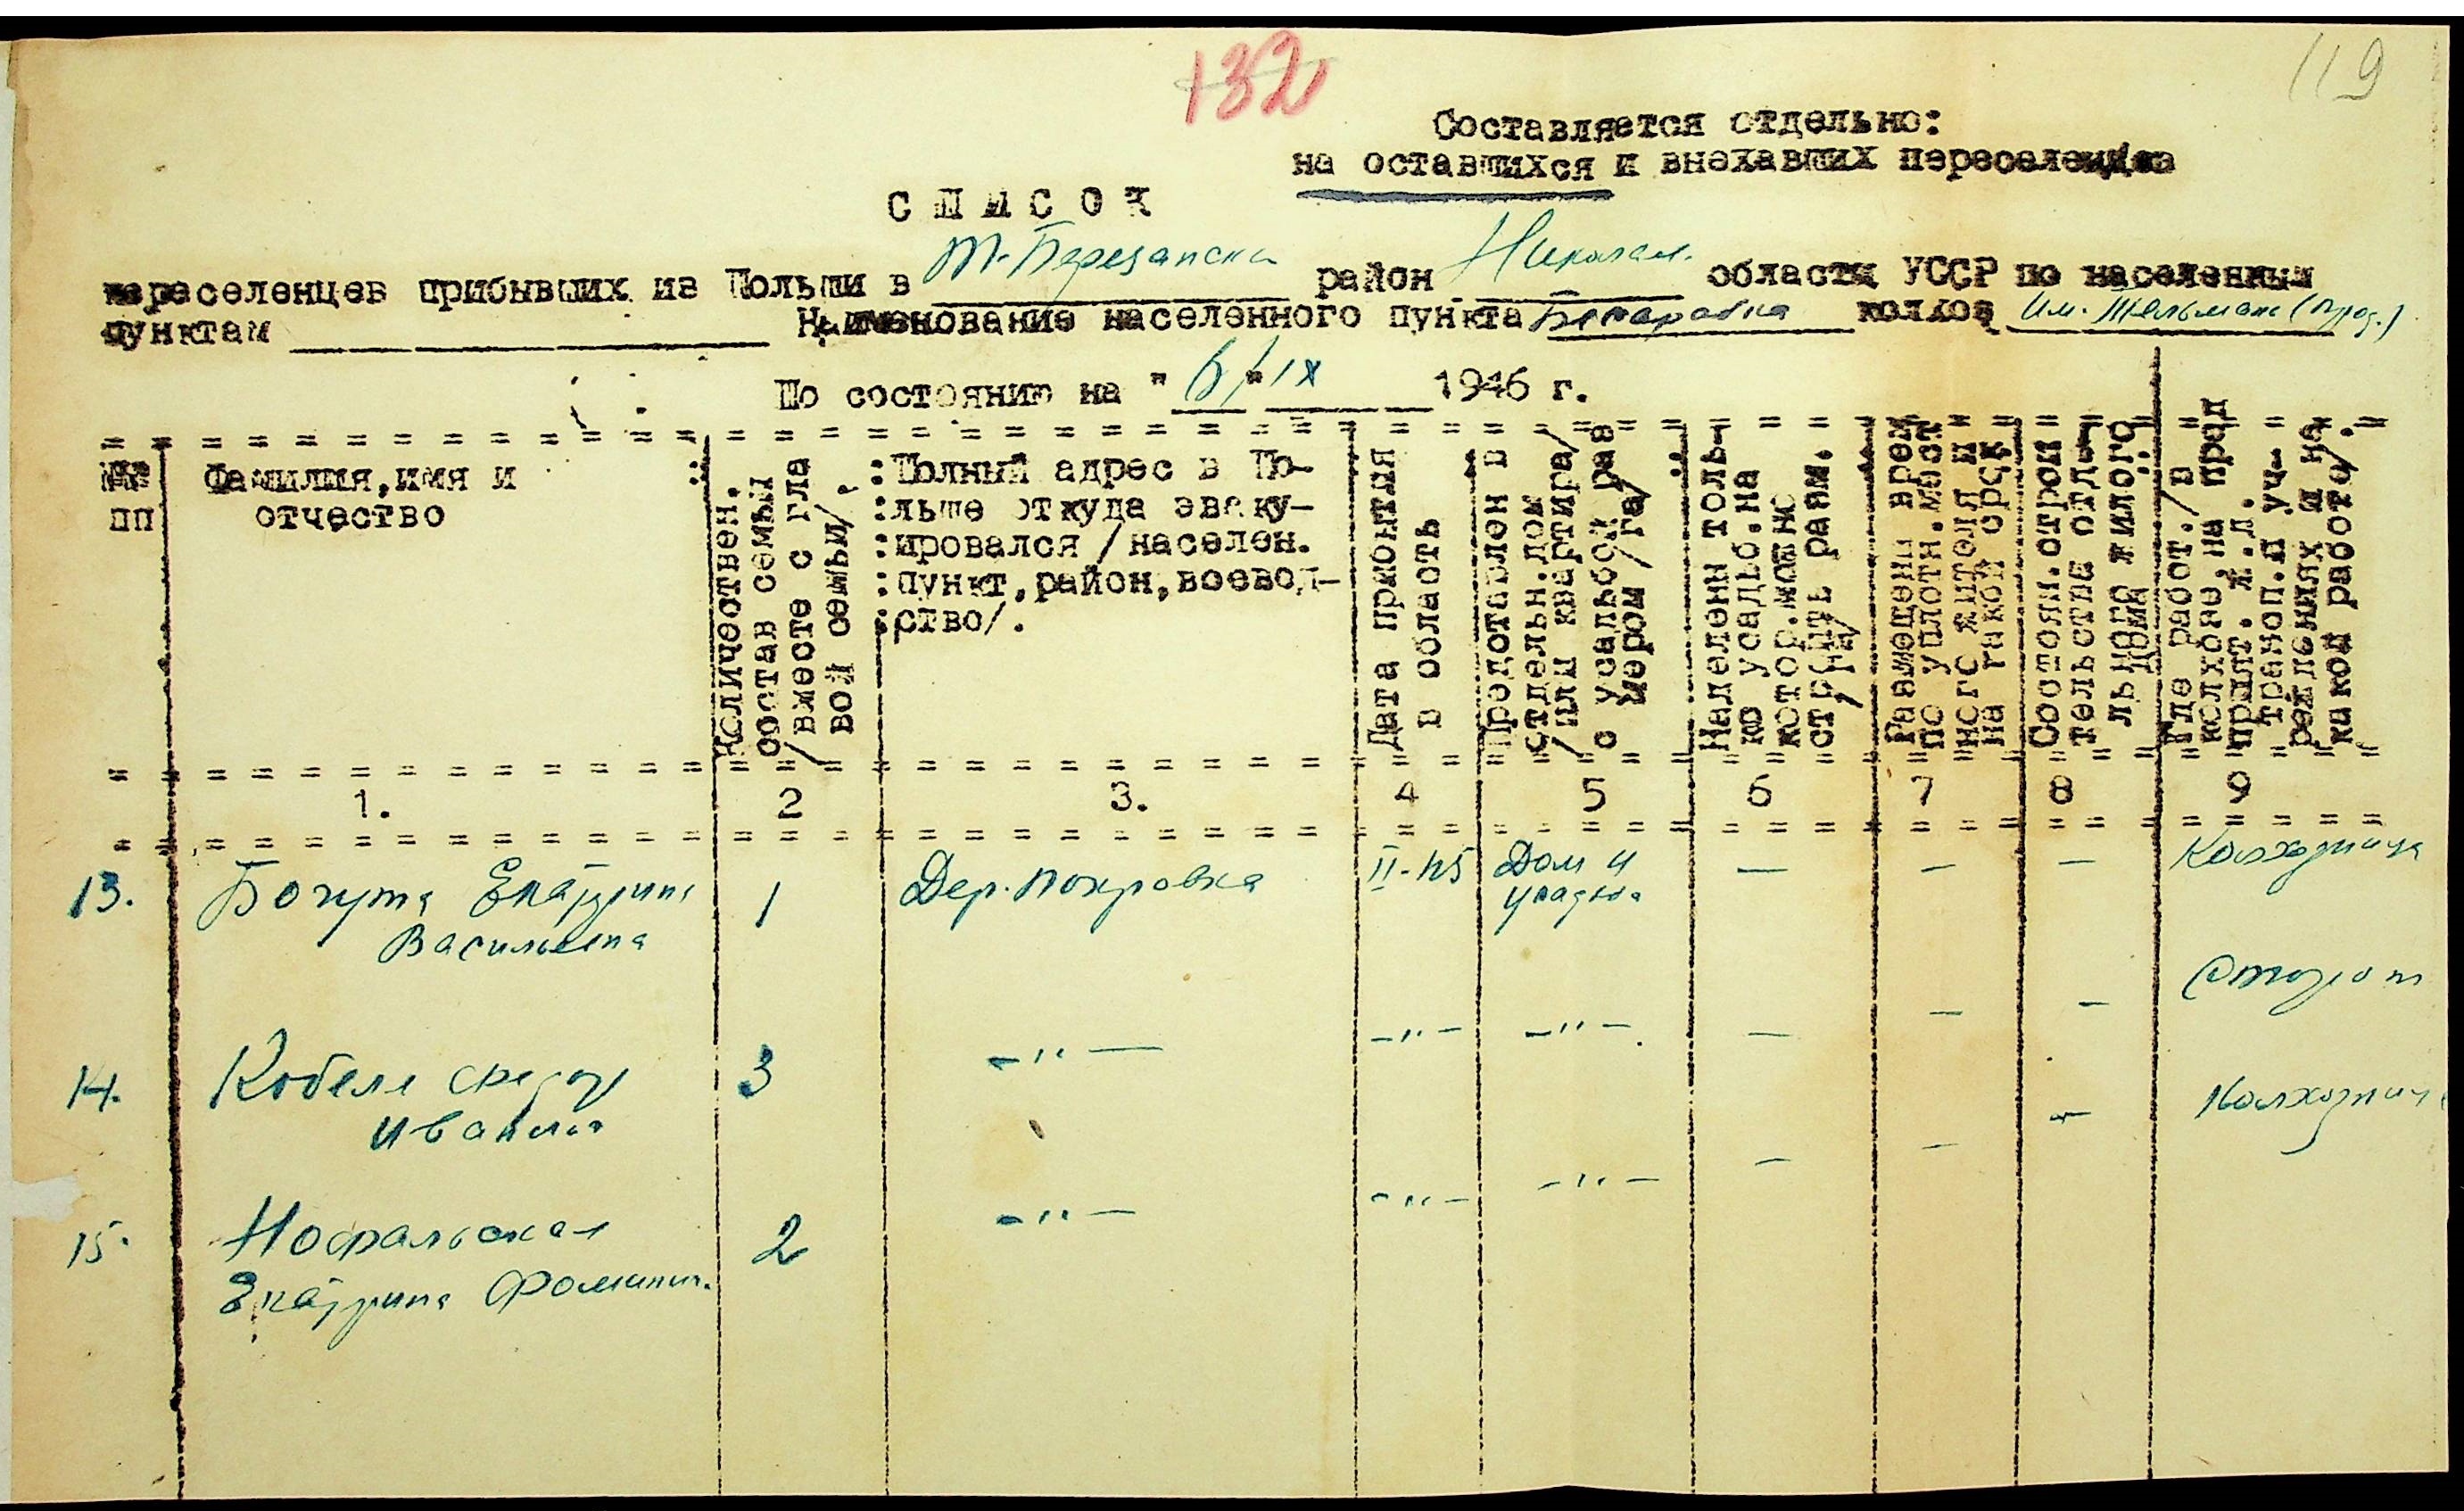 132
119
Составляется отдельно:
на оставшихся и внехавших переселенцев
С П И С О К
переселенцев прибывших из Польши в Т-Березанск район Николаев. области УССР по населенным
пунктам Наименование населенного пункта колхоз им. Тельмана (прод.)
По состоянию на " 6/"IX 1946 г.
№№ пп
Фамилия, имя и отчество
Количествен. состав семьи /вместе с главой семьи/.
:Полный адрес в По-
:льше откуда эваку-
:ировался /населен.
:пункт, район, воевод-
:ство/.
Дата прибытия в область
Предоставлен в отдельн.дом /или квартира/ с усадьбой размером /га/
Наделены только усадьб.на котор.можно строить разм. /га/
Размещены врем по уплотн.мест ного жителя и на такой срок
Состоян.строи тельства отдельного жилого дома
Где работ./в колхозе, на пред прият. ж.д. трансп.и уч- реждениях и на какой работе/.
1. 2 3. 4 5 6 7 8 9
13. Богута Екатерина 1 Дер. Покровка II-45 Дом и — — — Колхозница
Васильевна усадьба
14. Кобеля Федор 3 -"- -"- -"- — — — Сторож
Иванов
15. 2 -"- -"- -"- — — — Колхозница
Екатерина Фоминич.